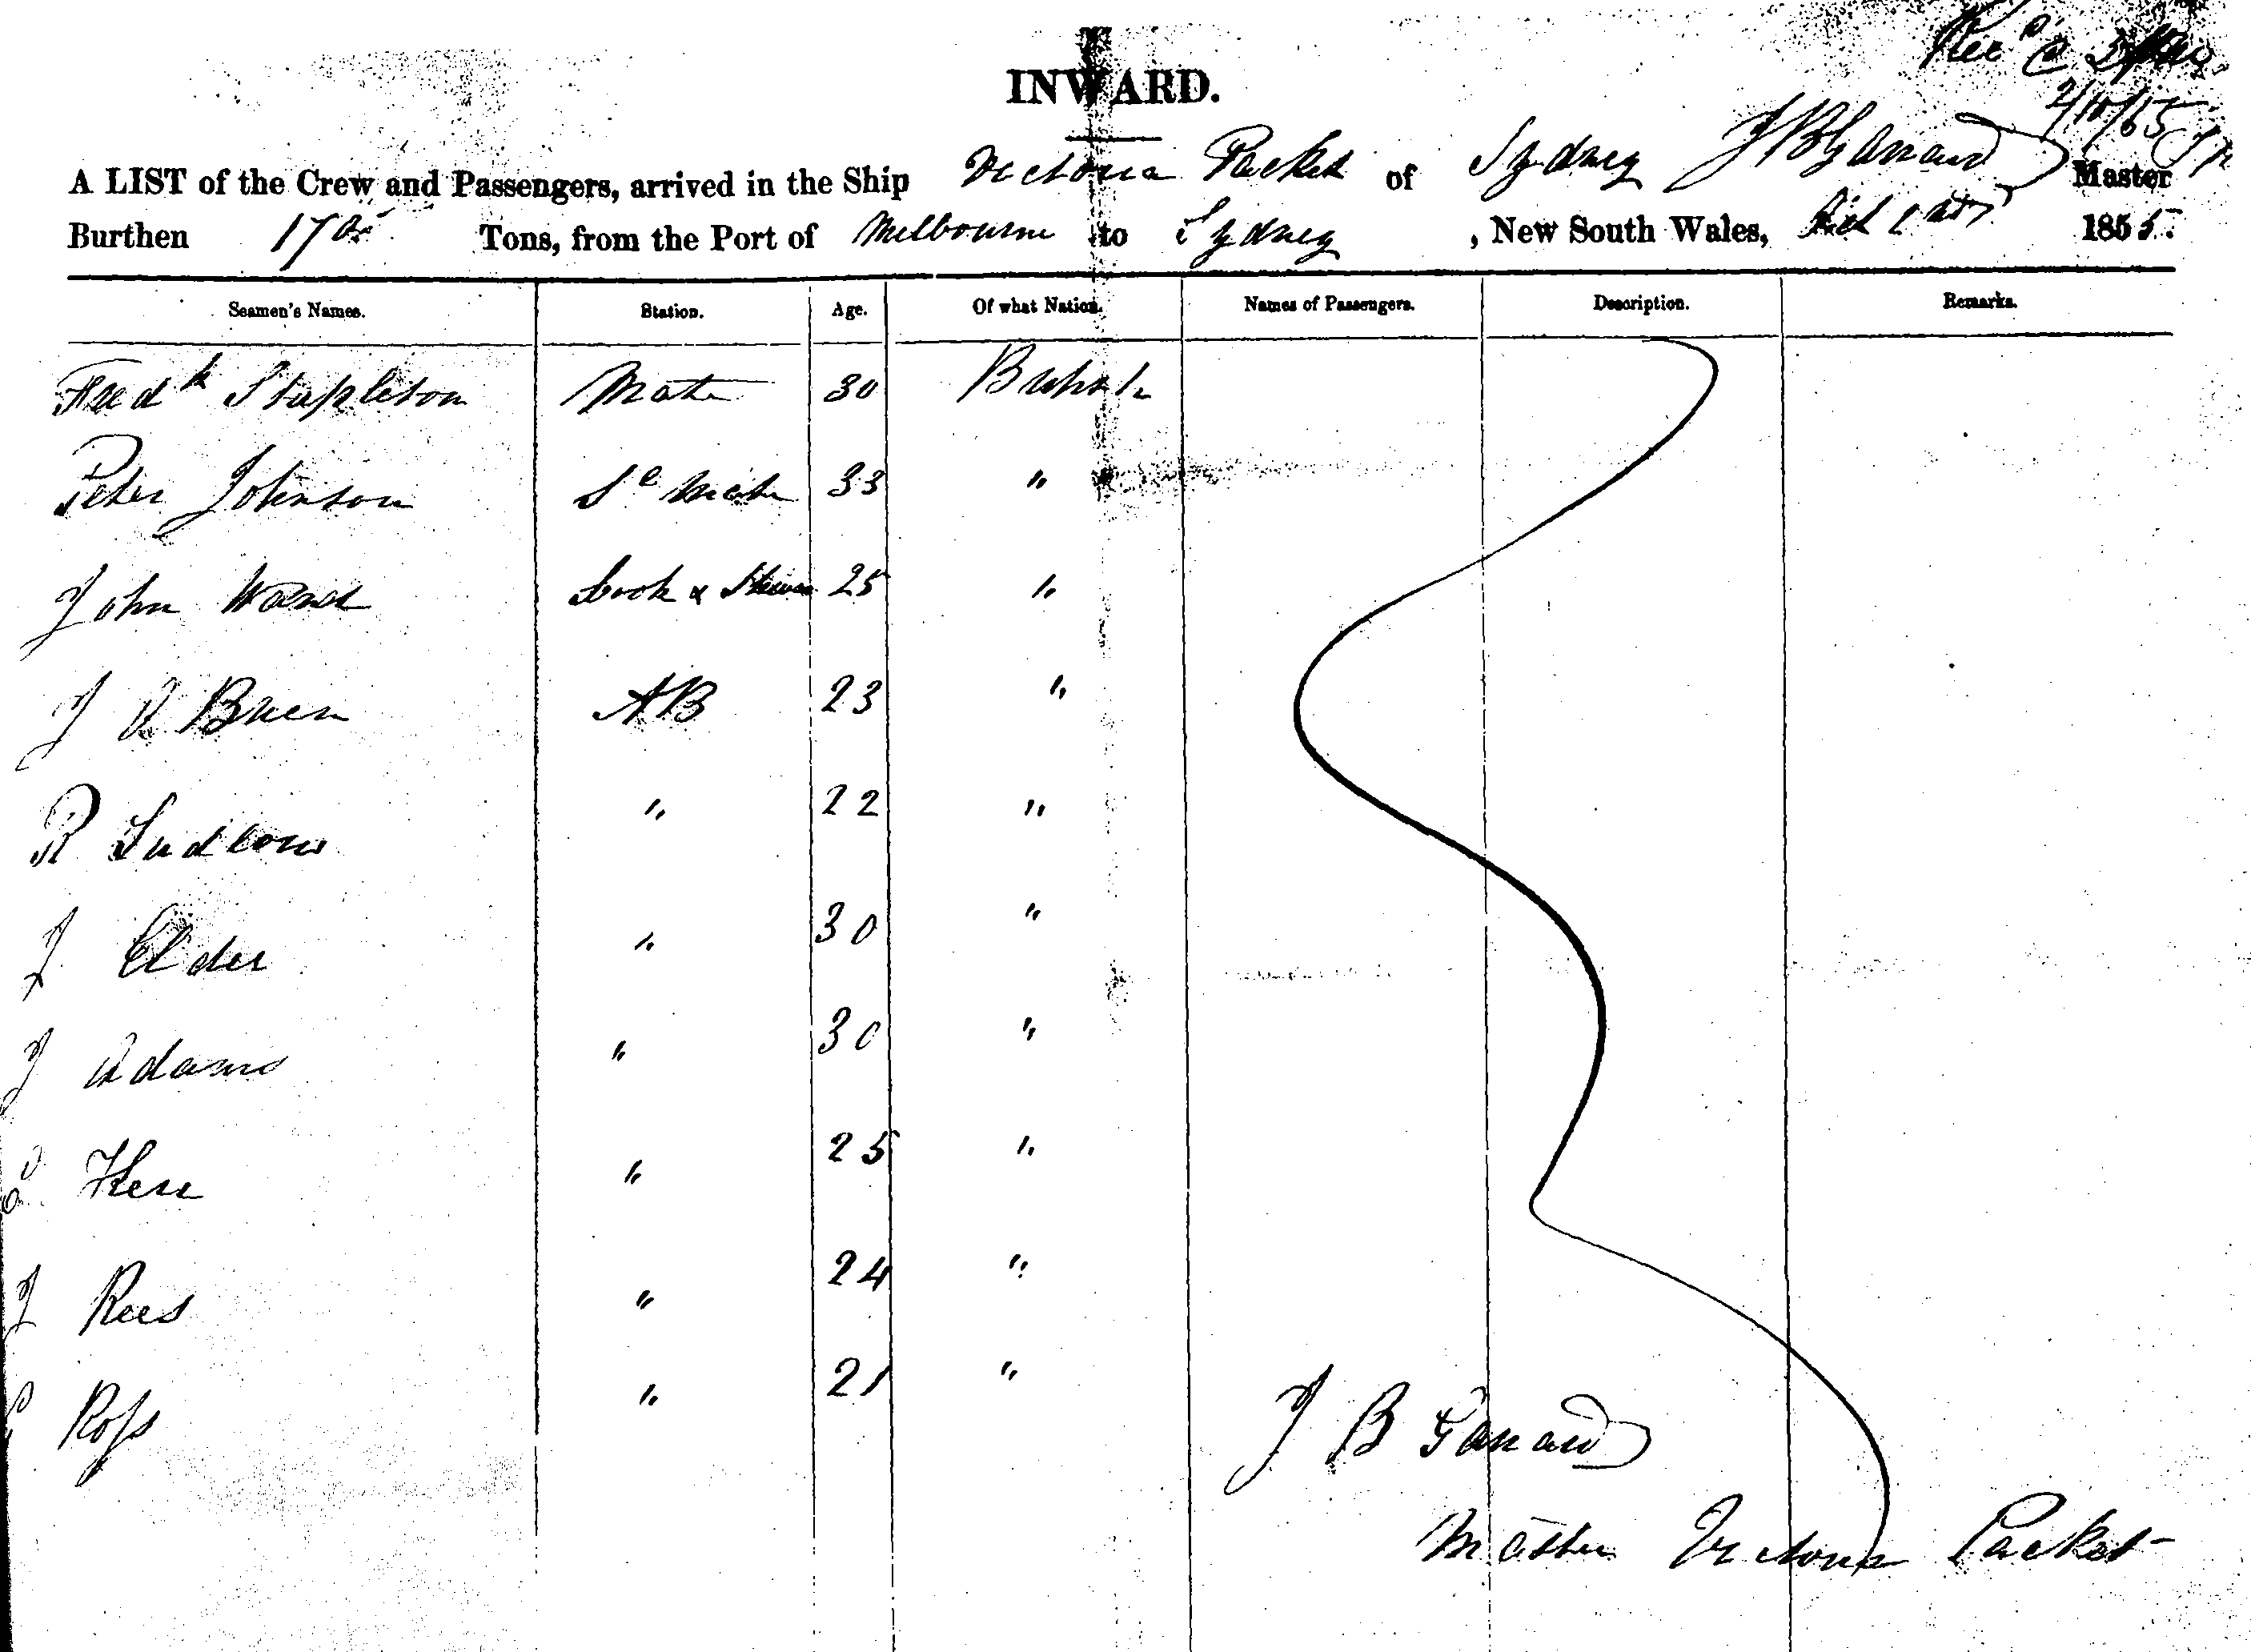 INWARD.
2/10/55
A LIST of the Crew and Passengers, arrived in the Ship Victoria Packet of Sydney J B Garrard Master
Burthen Tons, from the Port of Melbourne to Sydney, New South Wales, 1855.
Seamen's Names. Station. Age. Of what Nation. Names of Passengers. Description. Remarks.
Fredk Stapleton Mate 30 British
Peter Johnson Se Mate 33 "
John Cook & 25 "
J AB 23 "
R Ludlow " 22 "
J Elder " 30 "
J Adams " 30 "
Kerr " 25 "
J Rees " 24 "
Ross " 21 "
J B Garrard
Master Victoria Packet